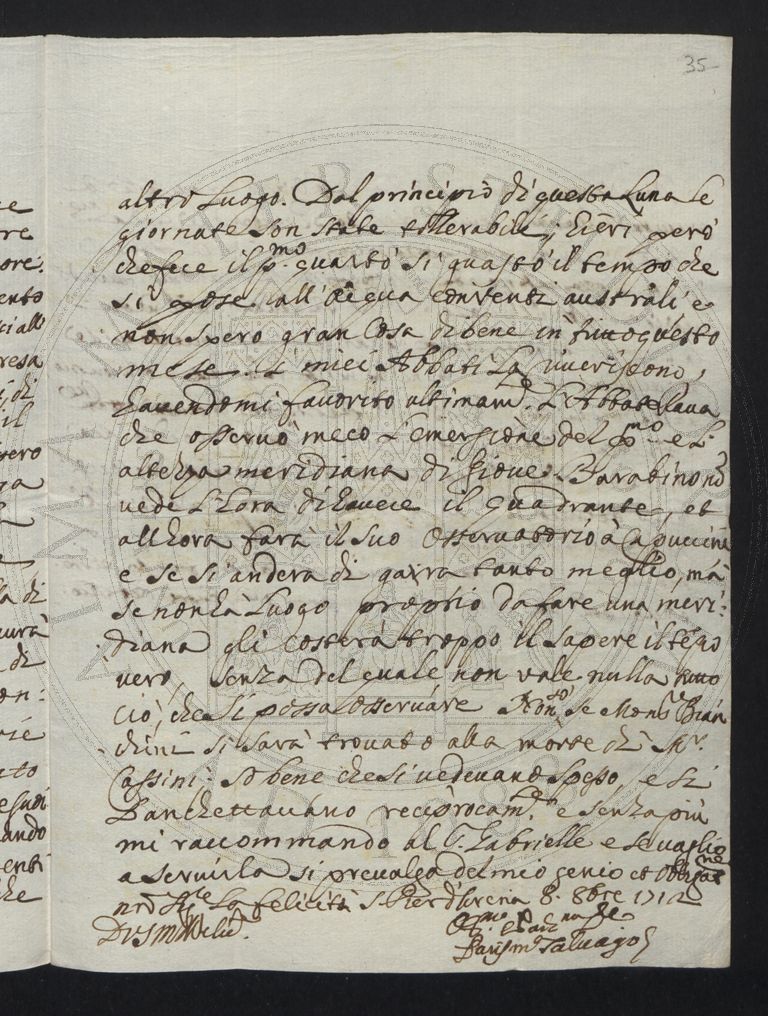 35
altro Luogo. Dal principio di questa Luna le
giornate son state tollerabili; hieri però
che fece il p.mo quarto si guastò il tempo che
si pose all'acqua con venti australi e
non spero gran Cosa di bene in tutto questo
mese. I miei Abbati La riveriscono,
havendomi favorito ultimam.te L'Abbate
che osservò meco L'emersione del p.mo e L'
altezza meridiana di Giove. Barabino
vede L'hora di havere il quadrante, et
all'hora farà il suo osservatorio à Capuccini
e se si anderà di garra tanto meglio, mà
se non hà Luogo proprio da fare una meri:
diana gli costerà troppo il sapere il tẽpo
vero, senza del quale non vale nulla tutto
ciò, che si possa osservare. Non sò se Mons.r Bian
chini si sarà trovato alla morte di M.r
Cassini: sò bene che si vedevano spesso, e si
banchettavano reciprocam.te e senza più
mi raccommando al S. Gabrielle e se vaglio
a servirla si prevalga del mio genio et
La felicita S. Pier d'Arena 8. 8bre 1712
Salvago
ore
ento
resa
di
il
a di
di
ando
che